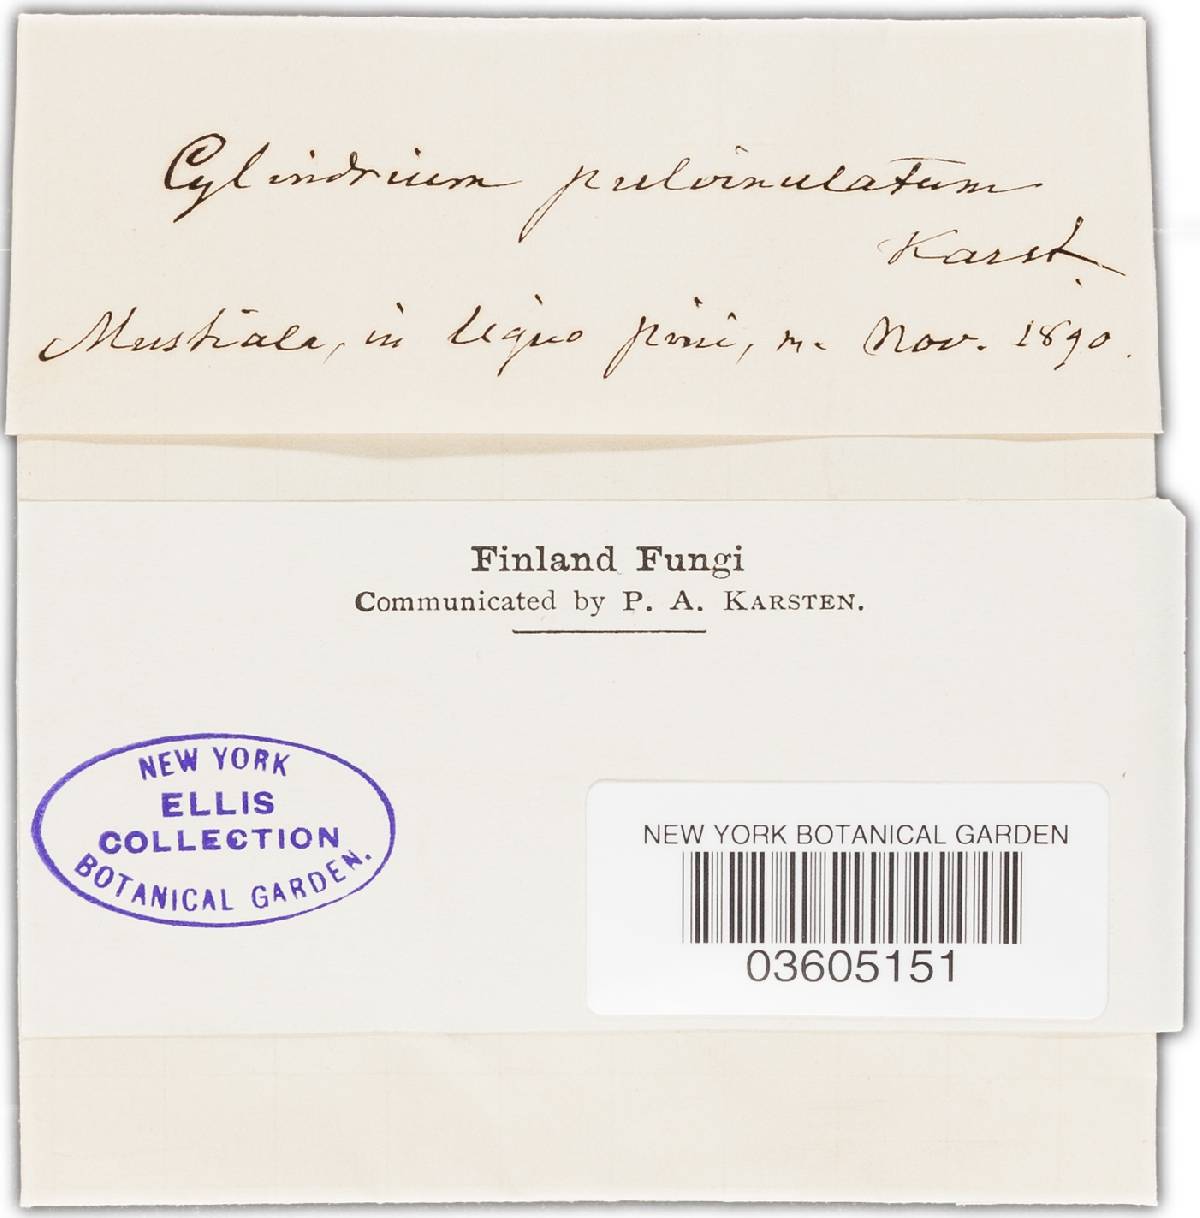 Cylindrium pulvinulatum
Karst.
Mustiala, in ligno pini, m. Nov. 1890.
Finland Fungi
Communicated by P. A. KARSTEN.
NEW YORK
ELLIS
COLLECTION
BOTANICAL GARDEN.
NEW YORK BOTANICAL GARDEN
03605151